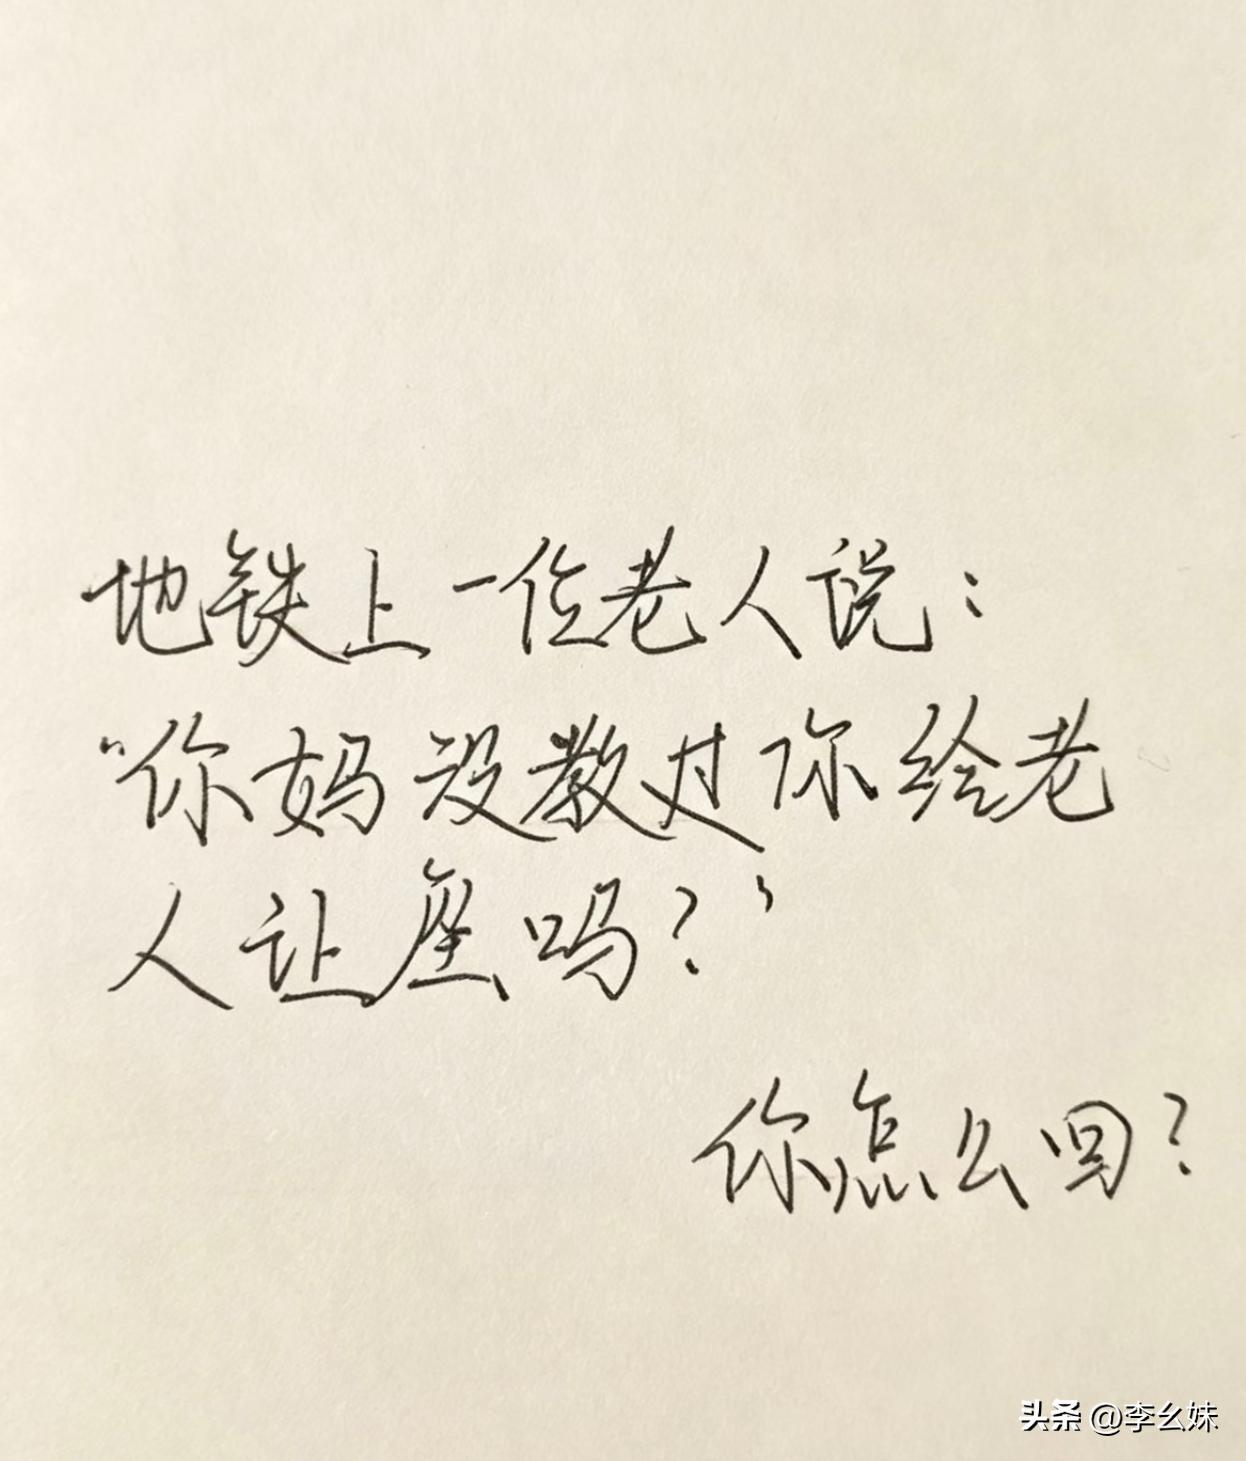 地铁上一位老人说：
“你妈没教过你给老
人让座吗？”
你怎么回？
头条 @李幺妹